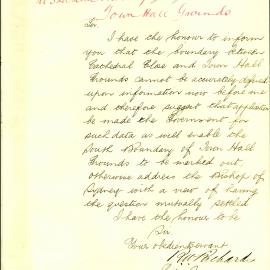 Town Hall Grounds
Sir
I have the honour to inform
you that the boundary between
Cathedral Close and Town Hall
Grounds cannot be accurately defined
upon information now before me
and therefore suggest that application
be made the Government for
such data as will enable the
South Boundary of Town Hall
Grounds to be marked out,
otherwise address the Bishop of
Sydney with a view of having
the question mutually settled
I have the honour to be
Sir
Your obedient servant
Richards